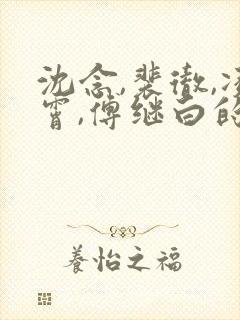 沈念,裴徹,凌
霄,傅继白的
養怡之福